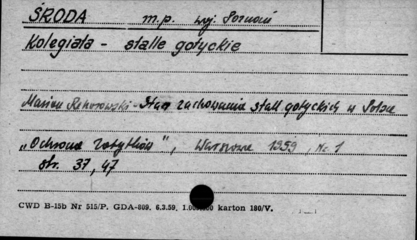 ŚRODA m.p. woj. Poznań
Kolegiata - stalle gotyckie
Marian Rehorowski - Stan zachowania stall gotyckich w Polsce
„Ochrona Zabytków", Warszawa 1959, Nr. 1
str. 37, 47
CWD B-15b Nr 515/P. GDA-809. 6.3.59. karton 180/V.